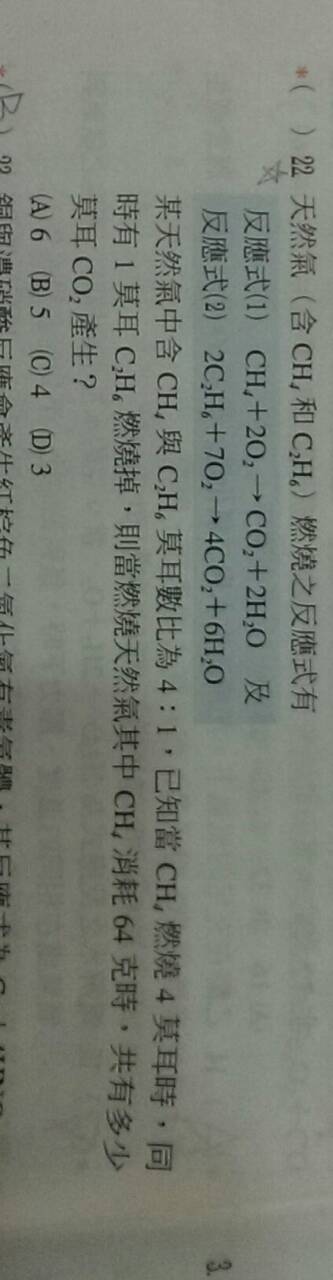 *(　) 22. 天然氣（含 CH₄ 和 C₂H₆）燃燒之反應式有
反應式(1)　CH₄＋2O₂→CO₂＋2H₂O　及
反應式(2)　2C₂H₆＋7O₂→4CO₂＋6H₂O
某天然氣中含 CH₄ 與 C₂H₆ 莫耳數比為 4：1，已知當 CH₄ 燃燒 4 莫耳時，同
時有 1 莫耳 C₂H₆ 燃燒掉，則當燃燒天然氣其中 CH₄ 消耗 64 克時，共有多少
莫耳 CO₂ 產生？
(A) 6　(B) 5　(C) 4　(D) 3
*(B) 23. 銅與濃硝酸反應會產生紅棕色二氧化氮有毒氣體，其反應式為
3.